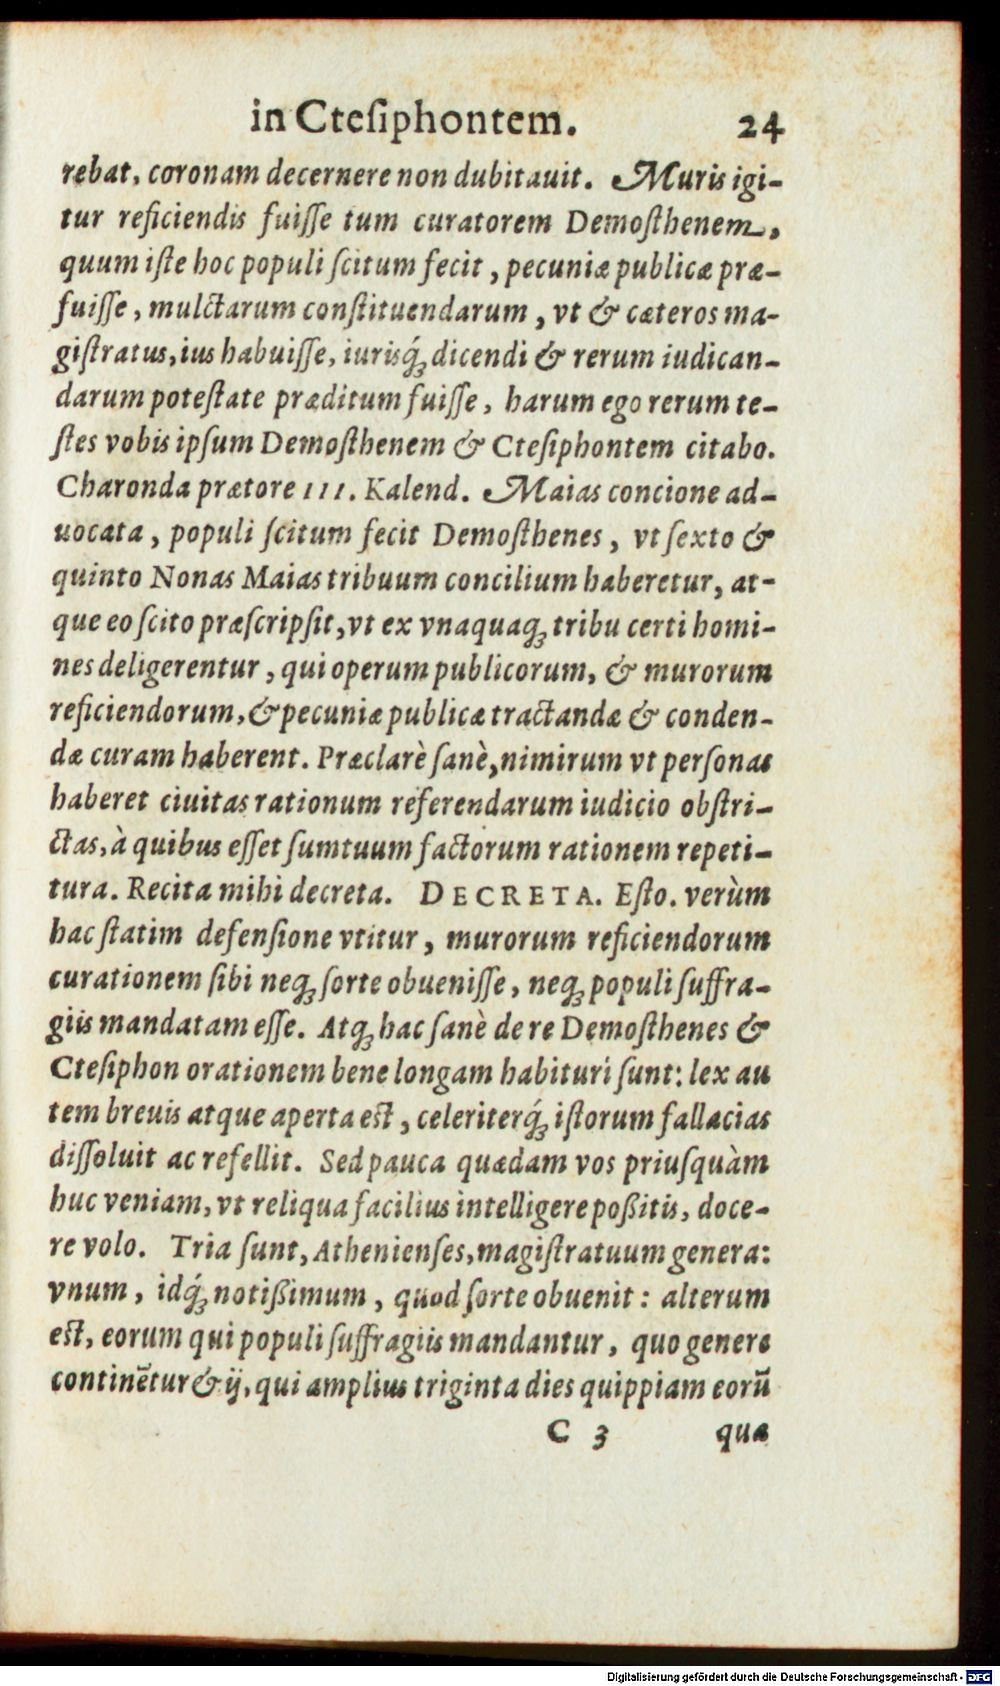 in Cteſiphontem. 24
rebat, coronam decernere non dubitauit. Muris igi-
tur reficiendis fuiſſe tum curatorem Demoſthenem,
quum iſte hoc populi ſcitum fecit, pecuniæ publicæ præ-
fuiſſe, mulctarum conſtituendarum, vt & cæteros ma-
giſtratus, ius habuiſſe, iurisq́ꝫ dicendi & rerum iudican-
darum poteſtate præditum fuiſſe, harum ego rerum te-
ſtes vobis ipſum Demoſthenem & Cteſiphontem citabo.
Charonda prætore III. Kalend. Maias concione ad-
uocata, populi ſcitum fecit Demoſthenes, vt ſexto &
quinto Nonas Maias tribuum concilium haberetur, at-
que eo ſcito præſcripſit, vt ex vnaquaqꝫ tribu certi homi-
nes deligerentur, qui operum publicorum, & murorum
reficiendorum, & pecuniæ publicæ tractandæ & conden-
dæ curam haberent. Præclarè ſanè, nimirum vt perſonas
haberet ciuitas rationum referendarum iudicio obſtri-
ctas, à quibus eſſet ſumtuum factorum rationem repeti-
tura. Recita mihi decreta. DECRETA. Eſto. verùm
hac ſtatim defenſione vtitur, murorum reficiendorum
curationem ſibi neqꝫ ſorte obueniſſe, neqꝫ populi ſuffra-
giis mandatam eſſe. Atqꝫ hac ſanè de re Demoſthenes &
Cteſiphon orationem bene longam habituri ſunt: lex au
tem breuis atque aperta eſt, celeriterq́ꝫ iſtorum fallacias
diſſoluit ac refellit. Sed pauca quædam vos priuſquàm
huc veniam, vt reliqua facilius intelligere poßitis, doce-
re volo. Tria ſunt, Athenienſes, magiſtratuum genera:
vnum, idq́ꝫ notißimum, quod ſorte obuenit: alterum
eſt, eorum qui populi ſuffragiis mandantur, quo genere
continẽtur & ij, qui amplius triginta dies quippiam eorũ
C 3 quæ
Digitalisierung gefördert durch die Deutsche Forschungsgemeinschaft - DFG